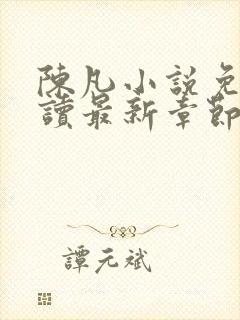 陳凡小說免
讀最新章節
譚元斌